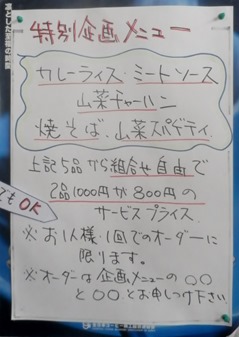 特別企画メニュー
カレーライス ミートソース
山菜チャーハン
焼そば、山菜スパゲティ
上記5品から組合せ自由で
2品1000円が800円の
サービスプライス
※お1人様・1回でのオーダーに
限ります。
※オーダーは企画メニューの〇〇
と〇〇とお申しつけ下さい
でもOK